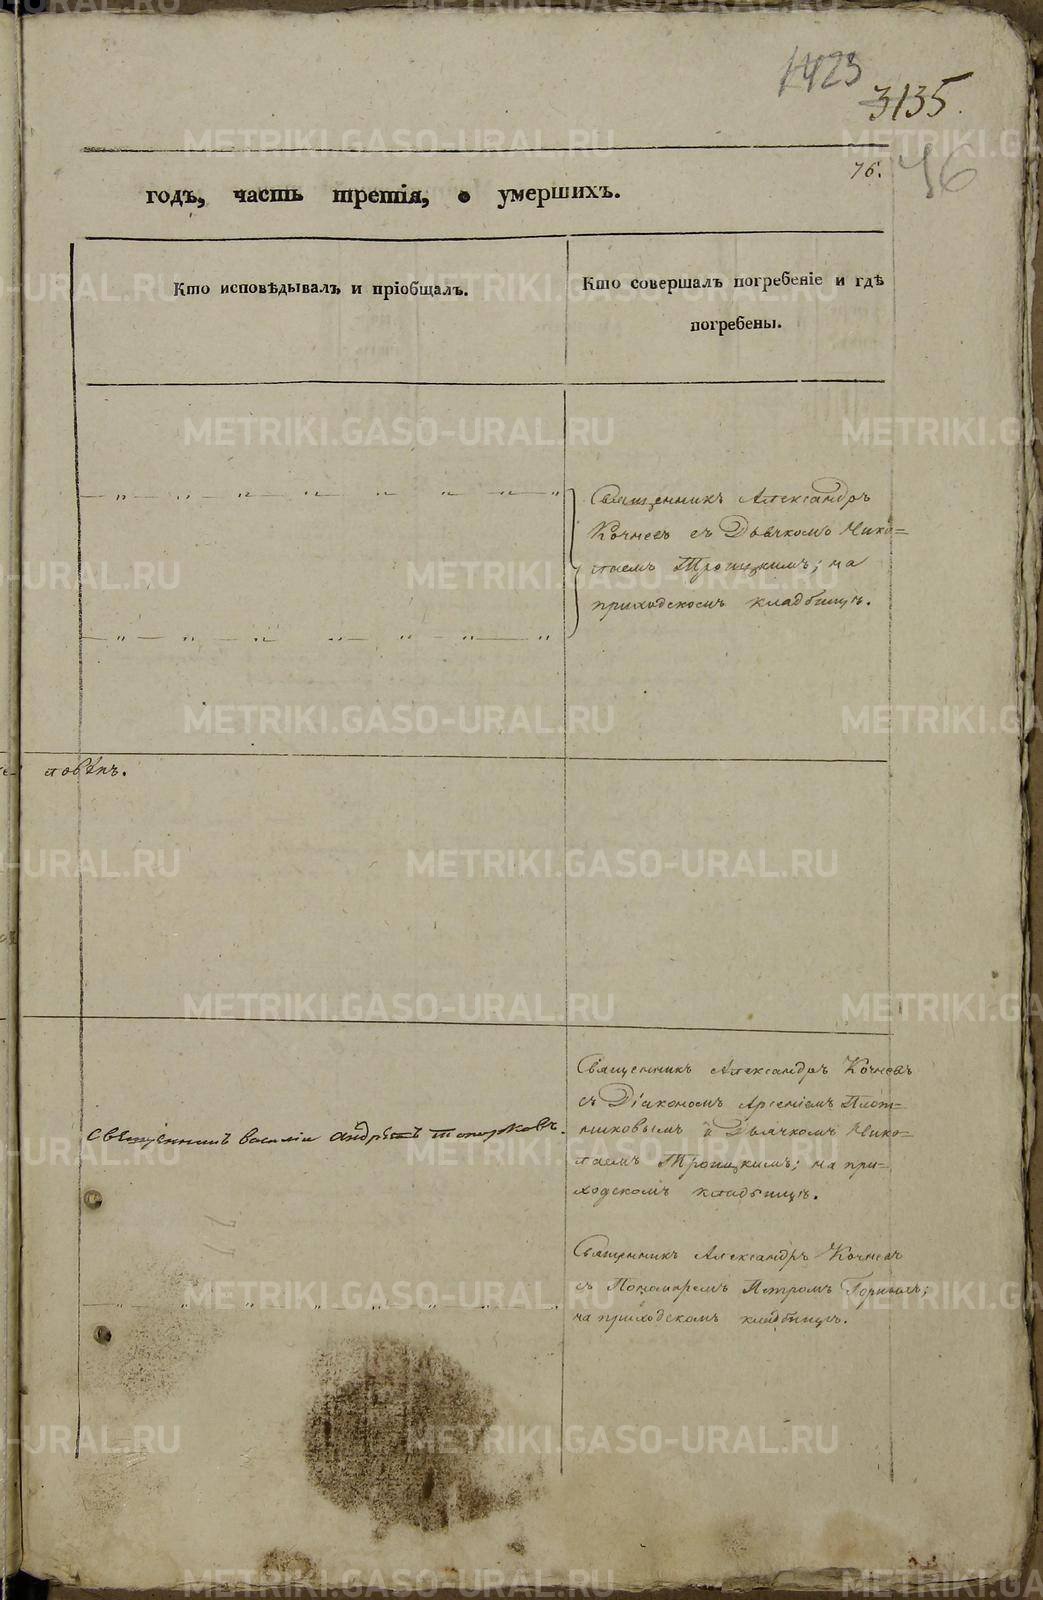 1423
3135.
76.
46
годъ, часть третія, о умершихъ.
Кто исповѣдывалъ и пріобщалъ.
Кто совершалъ погребеніе и гдѣ
погребены.
Священникъ Александръ
Кочневъ съ Дьячкомъ Нико=
лаемъ Троицкимъ; на
приходскомъ кладбищѣ.
ловѣкъ.
Священникъ Александръ Кочневъ
съ Діакономъ Арсеніемъ Плот=
никовымъ и Дьячкомъ Нико=
лаемъ Троицкимъ; на при=
ходскомъ кладбищѣ.
священникъ василіи андрѣевъ топорковъ.
Священникъ Александръ Кочневъ
съ Пономаремъ Петромъ Горныхъ;
на приходскомъ кладбищѣ.
METRIKI.GASO-URAL.RU